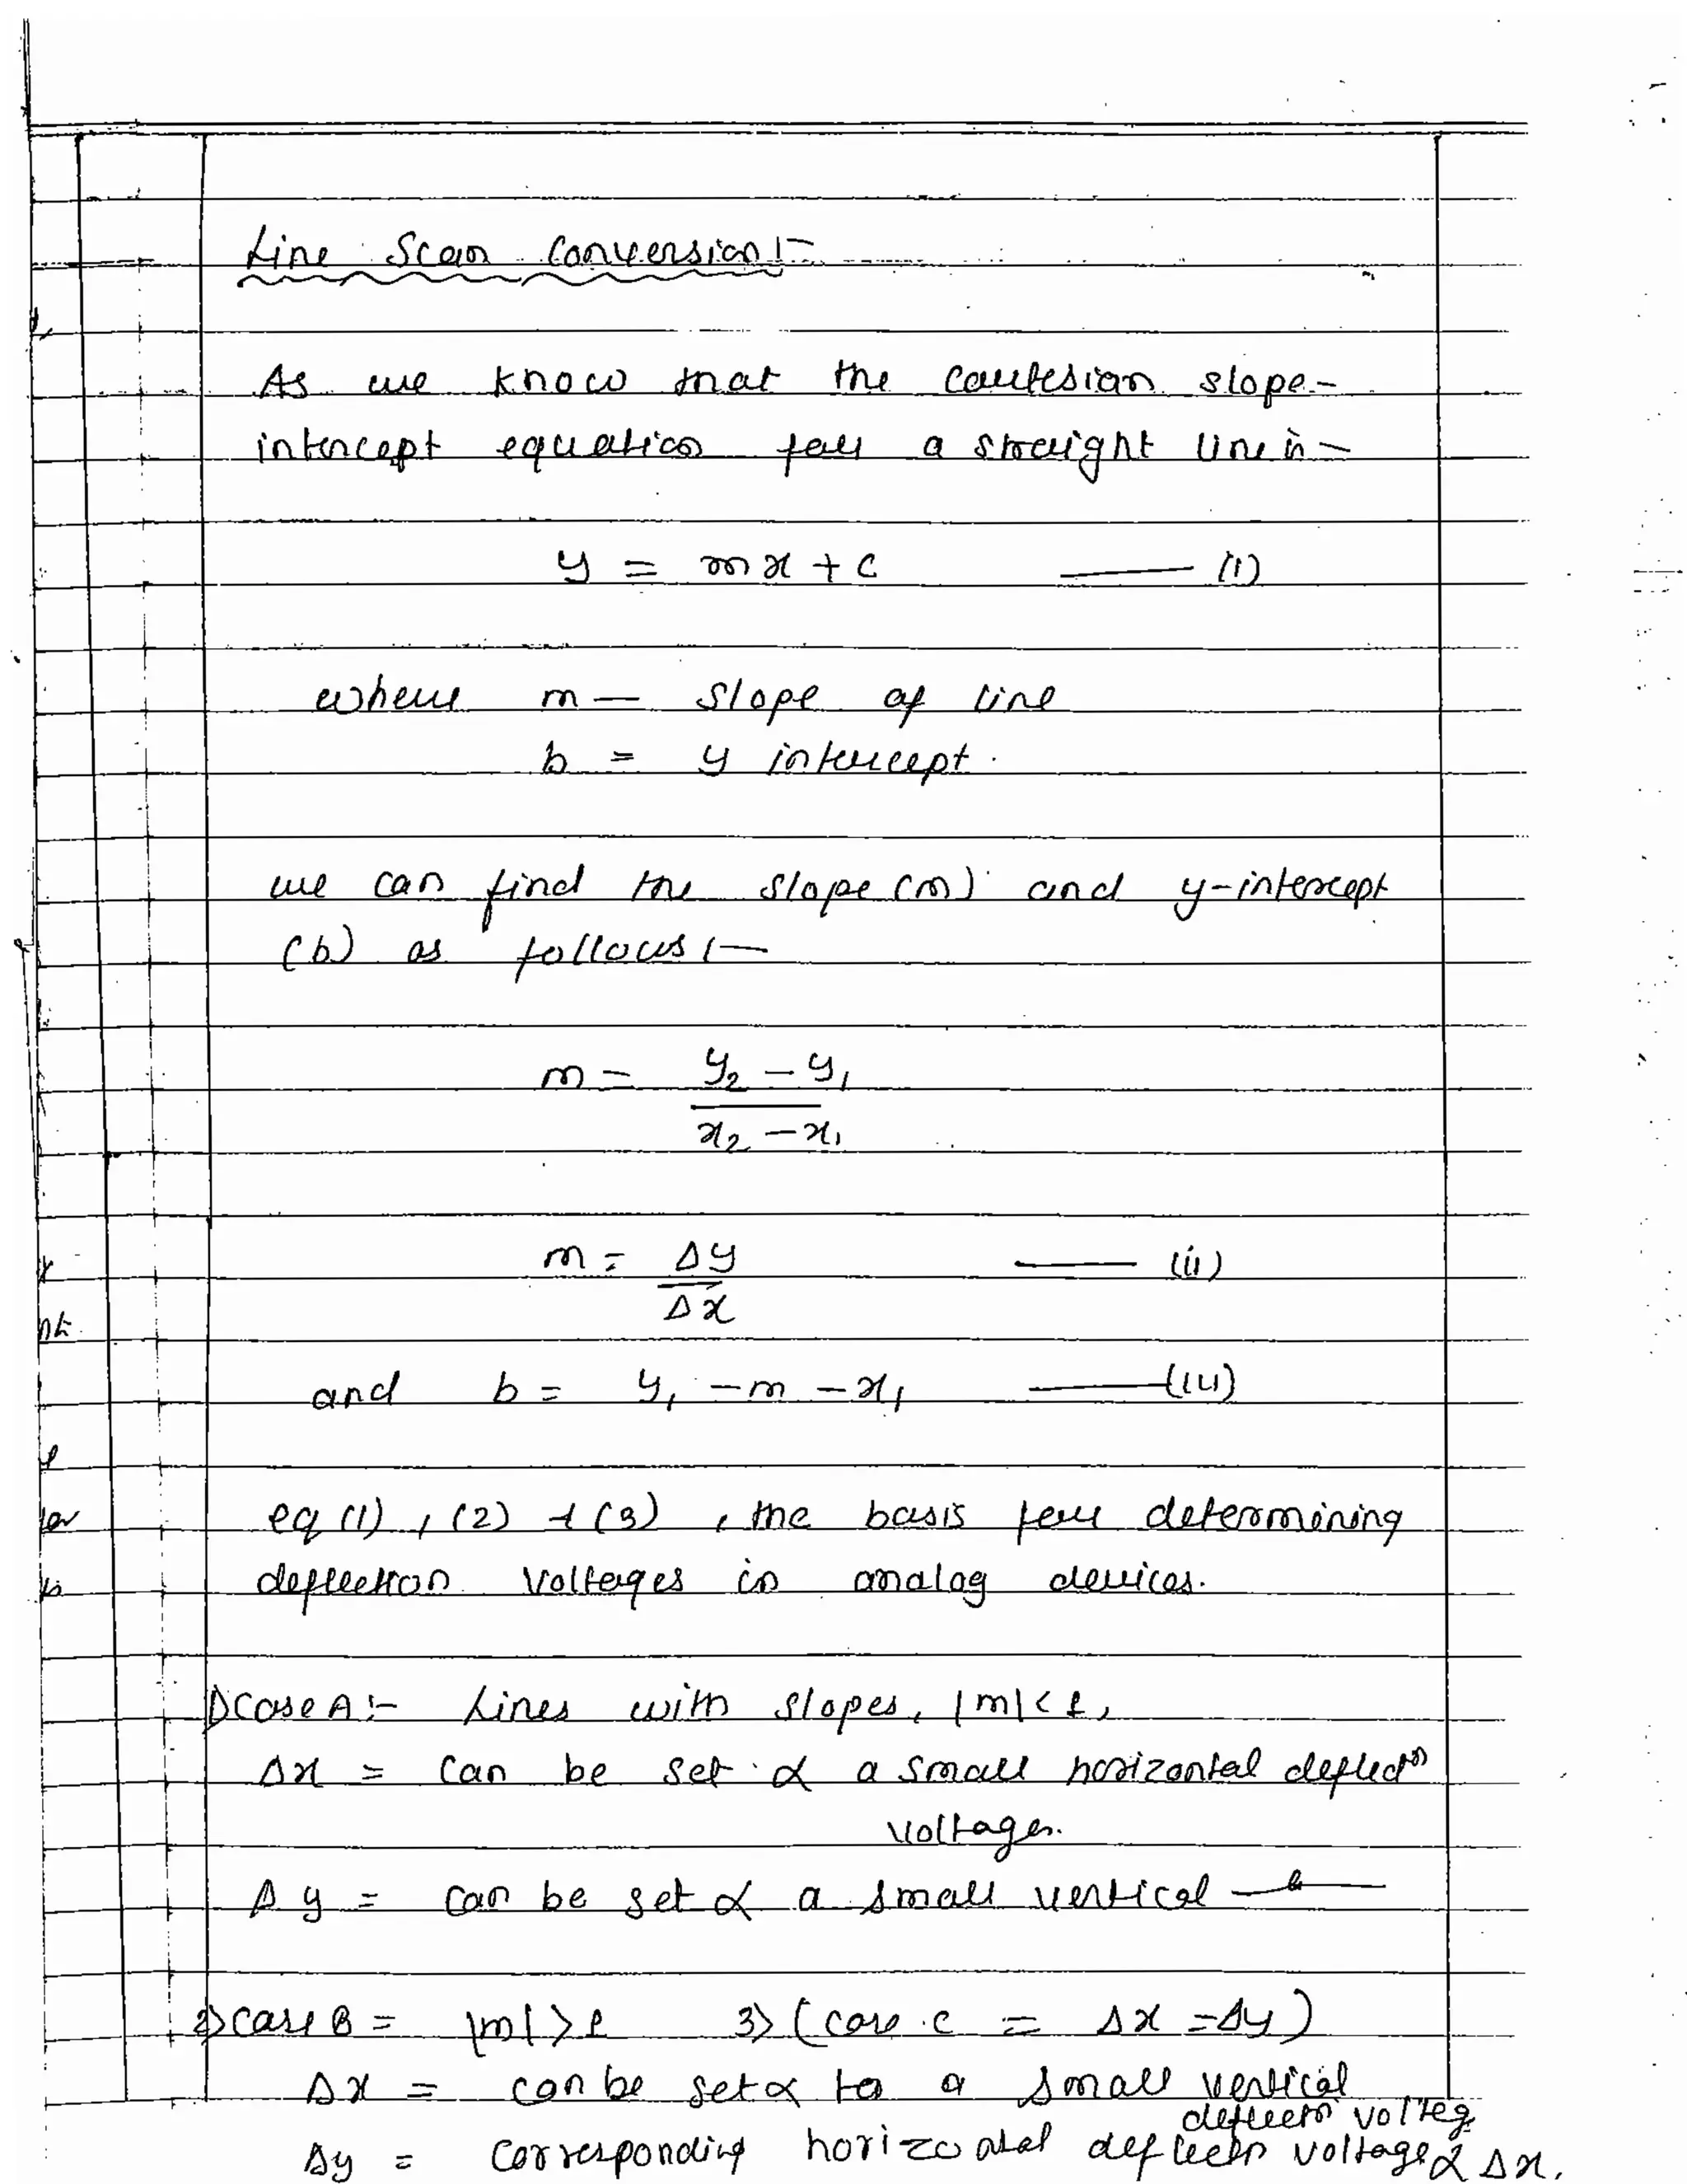 Line Scan Conversion:-
As we know that the cartesian slope-
intercept equation for a straight line is -
y = mx + c —— (1)
where m — slope of line
b = y intercept.
we can find the slope (m) and y-intercept
(b) as follows :-
m = y₂ - y₁
x₂ - x₁
m = Δy —— (ii)
Δx
and b = y₁ - m - x₁ —— (iii)
eq (1), (2) & (3), the basis for determining
deflection voltages in analog devices.
1) Case A :- Lines with slopes, |m| < 1,
Δx = can be set ∝ a small horizontal deflectⁿ
voltages.
Δy = can be set ∝ a small vertical —〃—
2) Case B = |m| > 1 3) (case C = Δx = Δy)
Δx = can be set ∝ to a small vertical
deflectⁿ voltag
Δy = corresponding horizontal deflectn voltage ∝ Δx.
nt
or